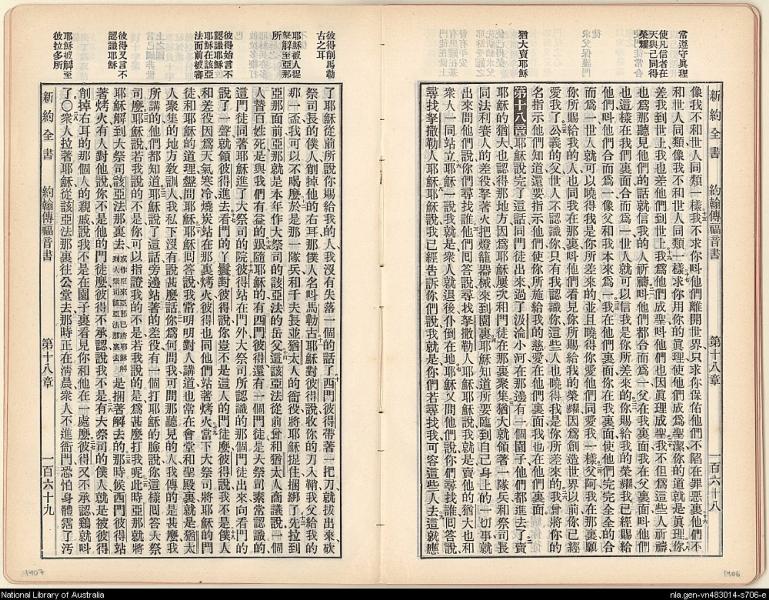 常遵守真理
使凡信者在
天與己同得
榮耀
猶大賣耶穌
新約全書 約翰傳福音書 第十八章 一百六十八
像我不和世人同類一樣我不求你叫他們離開世界只求你保佑他們不陷在罪惡裏他們不
和世人同類像我不和世人同類一樣求你用你的眞理使他們成爲聖潔你的道就是眞理你
差我到世上我也差他們到世上我爲他們成聖叫他們也因眞理成聖我不但爲這些人祈禱
也爲那聽見他們的話就信我的人祈禱叫他們都合而爲一父在我裏面我在父裏面叫他們
也這樣在我們裏面合而爲一世人就可以信我是你所差來的你賜給我的榮耀我已經賜給
他們叫他們合而爲一像父和我本來爲一我在他們裏面你在我裏面使他們完完全全的合
而爲一世人就可以曉得我是你所差來的並且曉得你愛他們同愛我一樣父阿我在那裏願
你所賜給我的人也同我在那裏叫他們看見你所賜給我的榮耀因爲創造世界以前你已經
愛我了公義的父世人不認識你只有我認識你這些人也曉得我是你所差來的我曾將你的
名指示他們知道還要指示他們使你所施給我的慈愛在他們裏面我也在他們裏面
第十八章 耶穌說完了這話同門徒出來過了汲淪小河在那邊有一個園子他們都進去了賣
耶穌的猶大也認得那地方因爲耶穌屢次和門徒在那裏聚集猶大就領著一隊兵和祭司長
同法利賽人的差役拏著火把燈籠器械來到園裏耶穌知道所要臨到自己身上的一切事就
出來問他們說你們尋找誰他們回答說尋找拏撒勒人耶穌耶穌說我就是賣他的猶大也和
衆人一同站立耶穌一說我就是衆人就退後仆倒在地耶穌又問他們說你們尋找誰回答說
尋找拏撒勒人耶穌耶穌說我已經告訴你們說我就是你們若尋找我可容這些人去這就應
1906
彼得削馬勒
古之耳
耶穌被人捉
拏解至亞那
所
彼得始言不
認識耶穌
耶穌在該亞
法面前被審
彼得又言不
認識耶穌
耶穌被解至
彼拉多所
了耶穌從前所說你賜給我的人我沒有失落一個的話了西門彼得帶著一把刀就拔出來砍
祭司長的僕人削掉他的右耳那僕人名叫馬勒古耶穌對彼得說收你的刀入鞘我父給我的
那一盃我可以不喝麼於是那一隊兵和千夫長並猶太人的衙役將耶穌捉住捆綁了先拉到
亞那面前亞那就是本年作大祭司的該亞法的岳父這該亞法從前曾和猶太人商議說一個
人替百姓死是與我們有益的跟隨耶穌的有西門彼得還有一個門徒是大祭司素常認識的
這門徒同著耶穌進了大祭司的院彼得站在門外大祭司所認識的那個門徒出來向看門的
說了一聲就領彼得進去看門的丫鬟對彼得說你豈不是這人的門徒麼彼得說我不是僕人
和差役因爲天氣寒冷燒炭站在那裏烤火彼得也同他們站著烤火當下大祭司將耶穌的門
徒和耶穌的道理盤問耶穌耶穌回答說我常明明對人講道也常在會堂和聖殿裏就是猶太
人聚集的地方敎訓人我私下沒有說甚麼話你爲何問我可問那聽見的人我傳的是甚麼我
所講的他們都知道耶穌說了這話旁邊站著的差役有一個打耶穌的臉說你這樣回答大祭
司麼耶穌說若我說的不是你可以指證我的不是若我說的是爲甚麼打我呢此時亞那就將
耶穌解到大祭司該亞法那裏去 是捆著解去的那時候西門彼得站
著烤火有人對他說你不是他的門徒麼彼得不承認說我不是有大祭司的僕人就是被彼得
削掉右耳的那個人的親戚說我不是在園子裏看見你和他在一處麼彼得又不承認鷄就叫
了〇衆人拉著耶穌從該亞法那裏往公堂去那時正在淸晨衆人不進衙門恐怕身體霑了汚
新約全書 約翰傳福音書 第十八章 一百六十九
1907
National Library of Australia
nla.gen-vn483014-s706-e